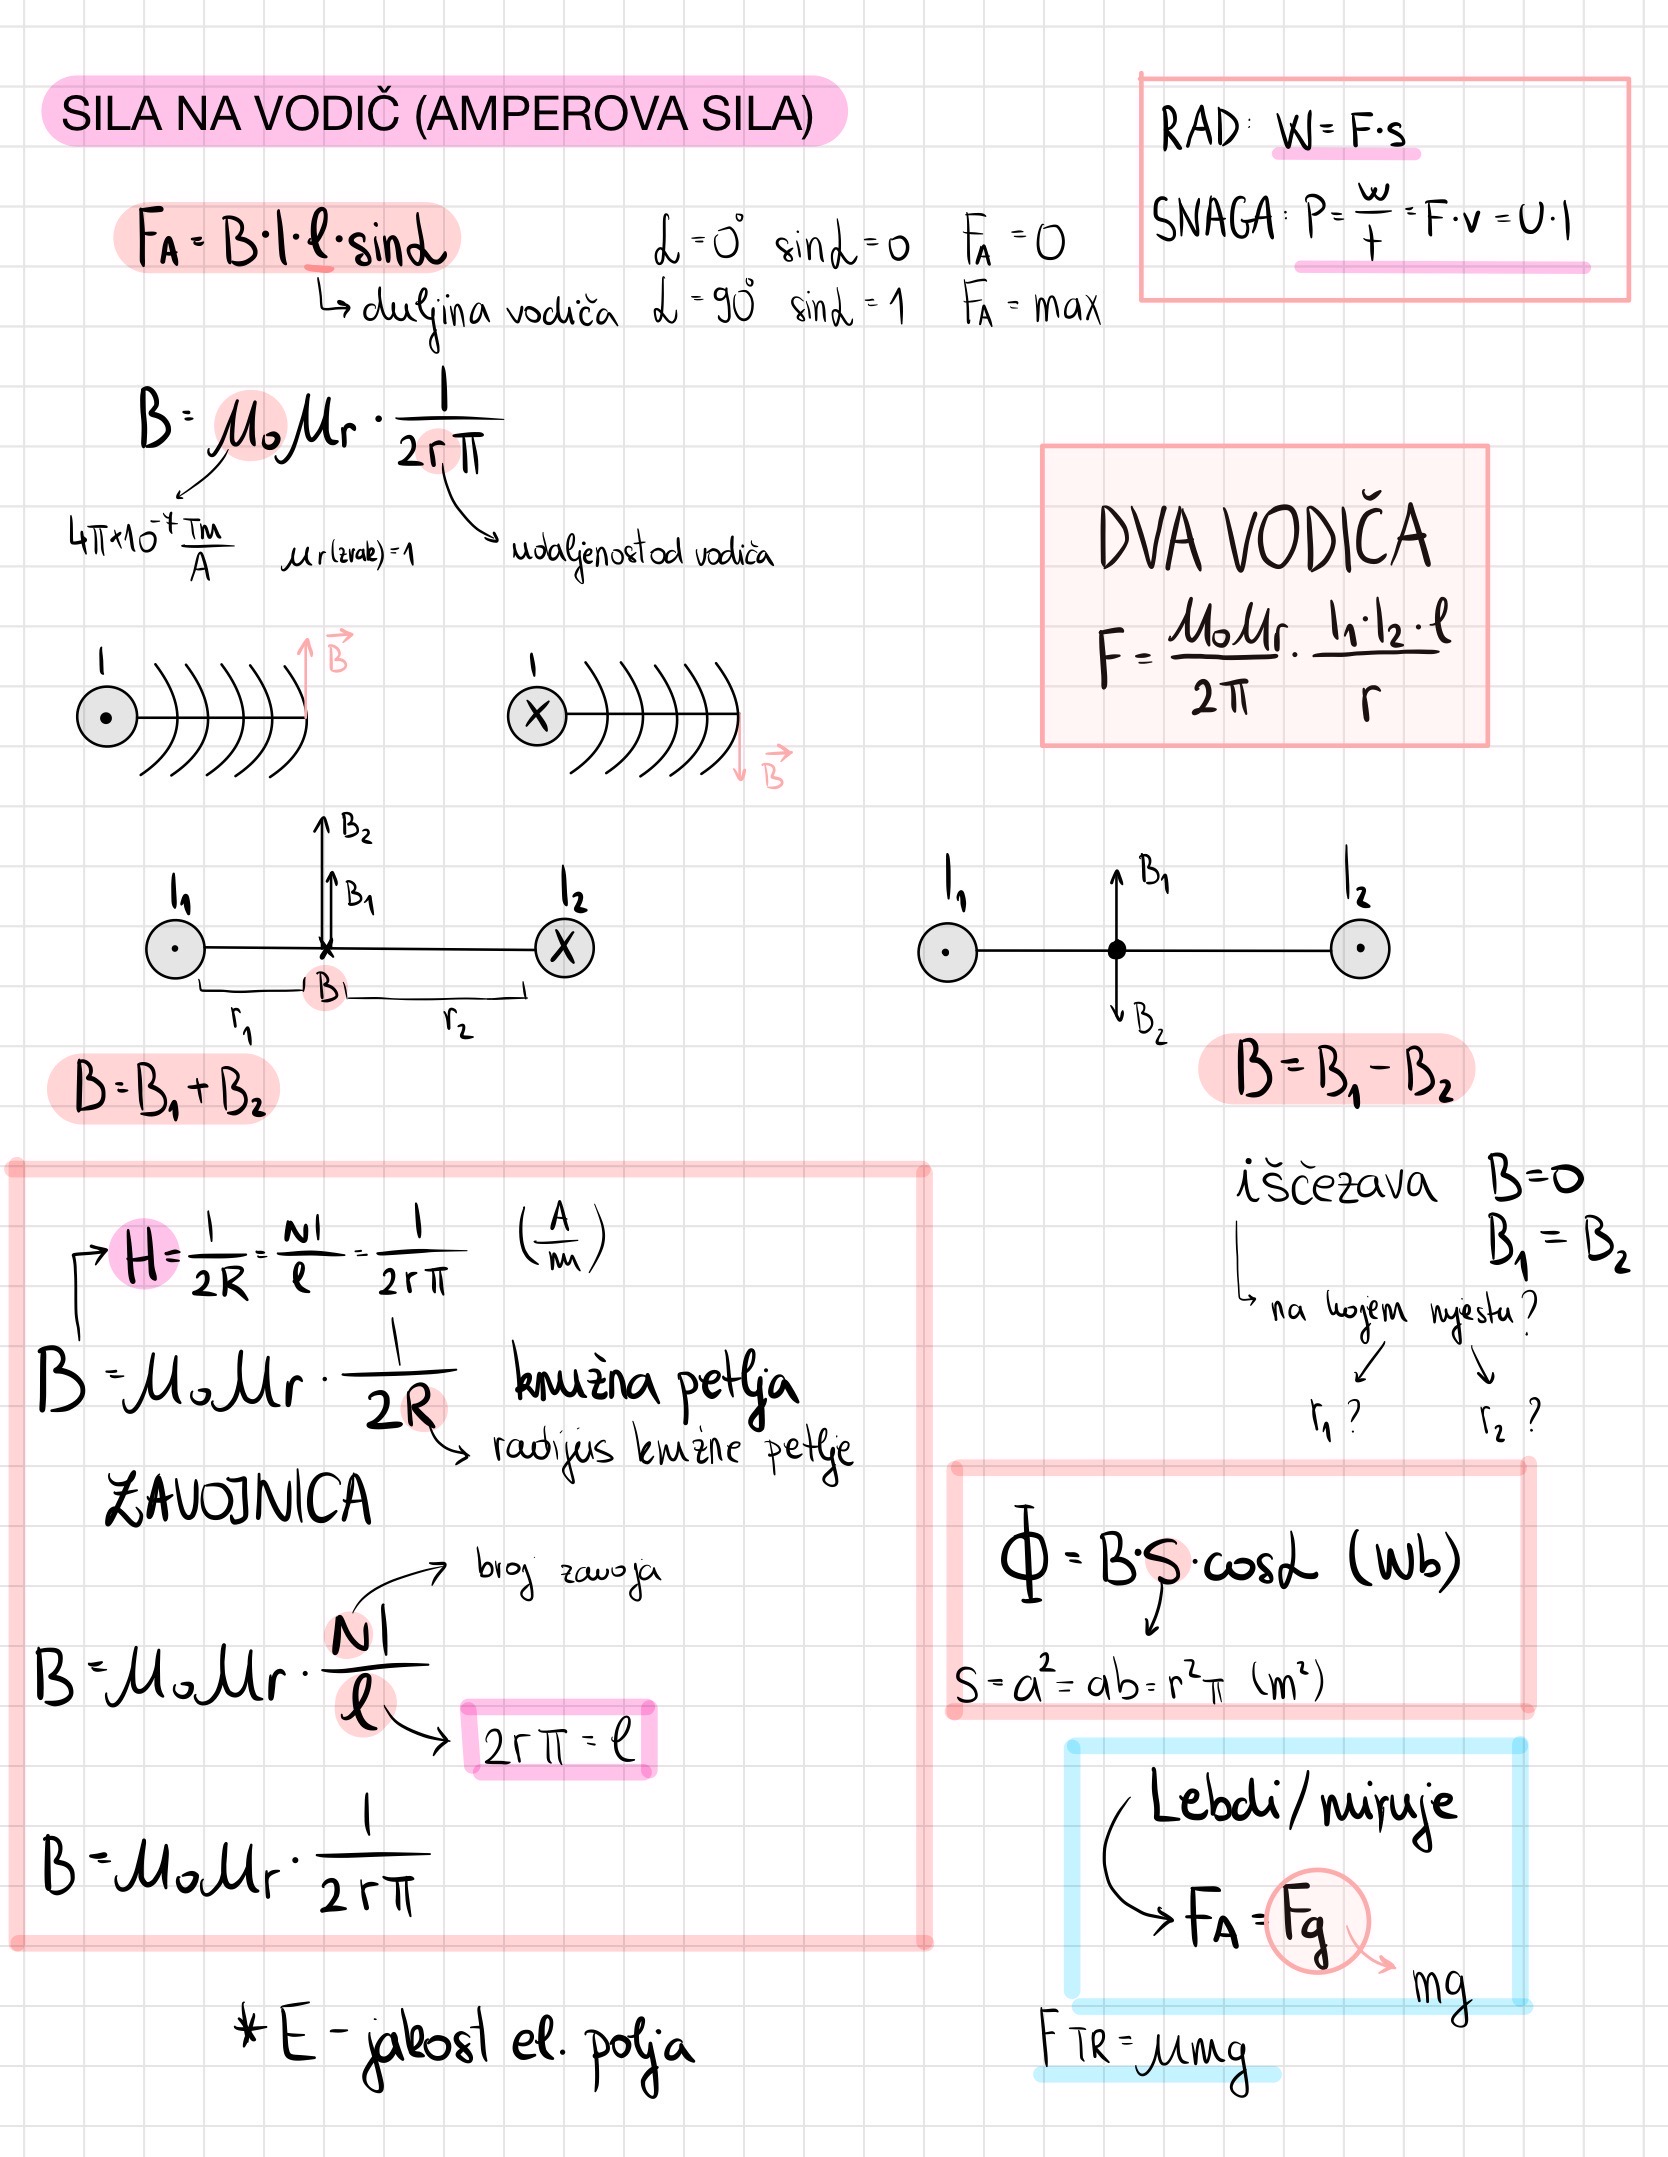 SILA NA VODIČ (AMPEROVA SILA)
RAD: W = F·s
SNAGA: P = W/t = F·v = U·I
F_A = B·I·ℓ·sinα
α = 0° sinα = 0 F_A = 0
↳ duljina vodiča
α = 90° sinα = 1 F_A = max
B = μ₀μr · I/(2rπ)
4π×10⁻⁷ Tm/A
μr(zrak) = 1
udaljenost od vodiča
DVA VODIČA
F = μ₀μr/(2π) · I₁·I₂·ℓ/r
I
B
I
X
B
I₁
B₂
B₁
I₂
X
x
B
r₁
r₂
B = B₁ + B₂
I₁
B₁
I₂
B₂
B = B₁ − B₂
iščezava B = 0
B₁ = B₂
↳ na kojem mjestu?
r₁ ?
r₂ ?
H = I/(2R) = NI/ℓ = I/(2rπ) (A/m)
B = μ₀μr · I/(2R) kružna petlja
radijus kružne petlje
ZAVOJNICA
broj zavoja
B = μ₀μr · NI/ℓ
2rπ = ℓ
B = μ₀μr · I/(2rπ)
Φ = B·S·cosα (Wb)
S = a² = ab = r²π (m²)
Lebdi/miruje
F_A = Fg
mg
F_TR = μmg
* E – jakost el. polja